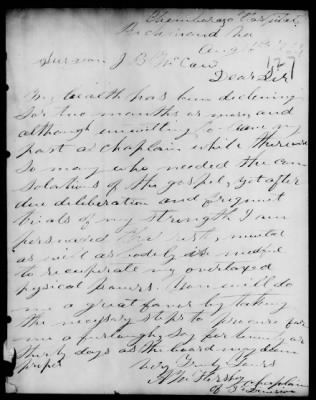 Chimborazo Hospital
Richmond Va
Aug
127
Surgeon J B McCaw
Dear Sir
My health has been declining
for two months or more, and
although unwilling to leave my
post as chaplain while there are
so many who needed the con
solations of the gospel, yet after
due deliberation and frequent
trials of my strength I am
persuaded that rest, mental
as well as bodily is needful
to recuperate my overtaxed
physical powers. You will do
me a great favor by taking
the necessary steps to procure for
me a furlough, say for twenty or
thirty days as the board may deem
proper
Very Truly Yours
Chaplain
of 3 Division